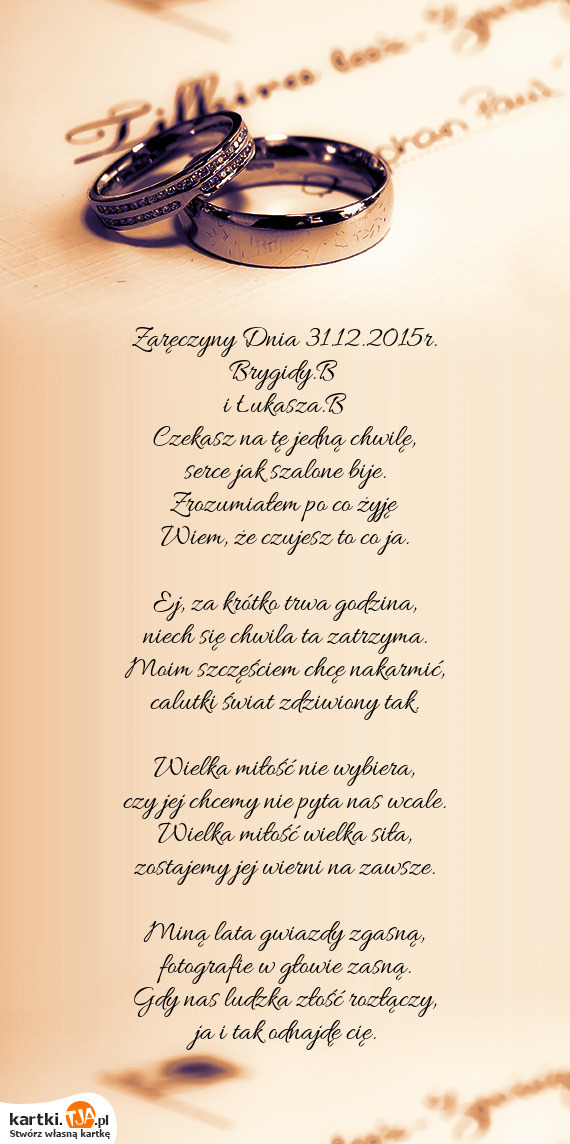 Zaręczyny Dnia 31.12.2015r.
Brygidy.B
i Łukasza.B
Czekasz na tę jedną chwilę,
serce jak szalone bije.
Zrozumiałem po co żyję
Wiem, że czujesz to co ja.
Ej, za krótko trwa godzina,
niech się chwila ta zatrzyma.
Moim szczęściem chcę nakarmić,
calutki świat zdziwiony tak.
Wielka miłość nie wybiera,
czy jej chcemy nie pyta nas wcale.
Wielka miłość wielka siła,
zostajemy jej wierni na zawsze.
Miną lata gwiazdy zgasną,
fotografie w głowie zasną.
Gdy nas ludzka złość rozłączy,
ja i tak odnajdę cię.
kartki.TJA.pl
Stwórz własną kartkę